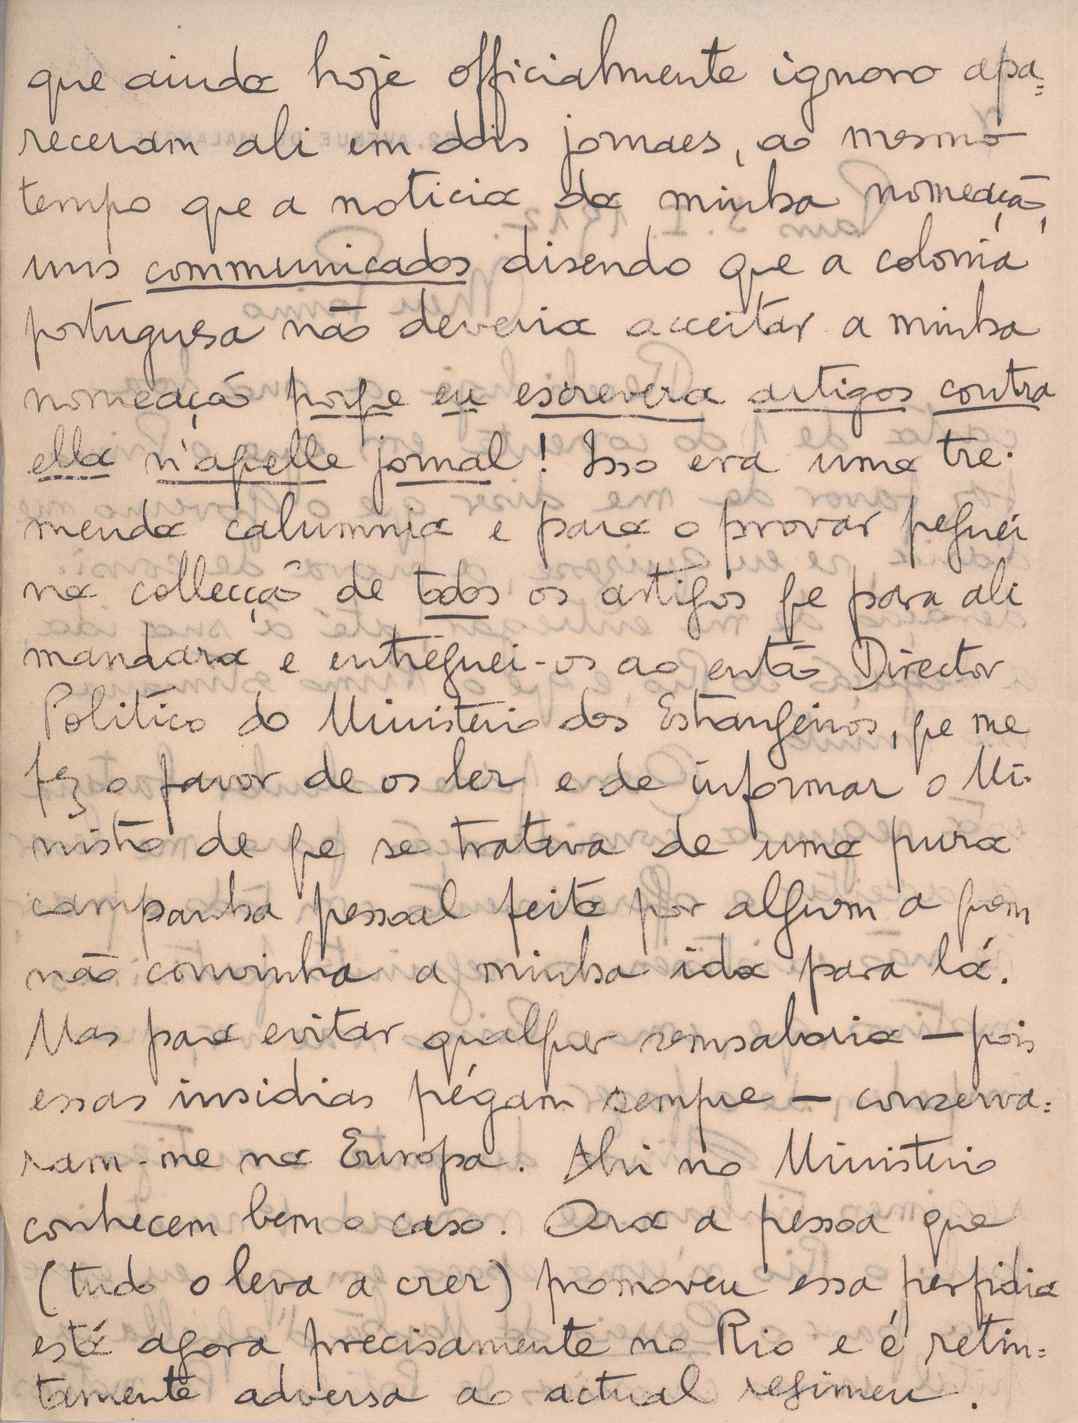 que ainda hoje officialmente ignoro apa=
receram ali em dois jornaes, ao mesmo
tempo que a noticia da minha nomeação,
uns communicados disendo que a colonia
portuguesa não deveria acceitar a minha
nomeação porqe eu escrevera artigos contra
ella n'aquelle jornal! Isso era uma tre-
menda calumnia e para o provar peguei
na collecção de todos os artigos qe para ali
mandara e entreguei-os ao então Director
Politico do Ministerio dos Estrangeiros, qe me
fez o favor de os ler e de informar o Mi-
nistro de qe se tratava de uma pura
campanha pessoal feita por algum a quem
não convinha a minha ida para lá.
Mas para evitar qualquer semsaboria — pois
essas insidias pégam sempre — conserva=
ram-me na Europa. Ahi no Ministerio
conhecem bem o caso. Ora a pessoa que
(tudo o leva a crer) promoveu essa perfidia
está agora precisamente no Rio e é retin=
tamente adversa ao actual regimen.